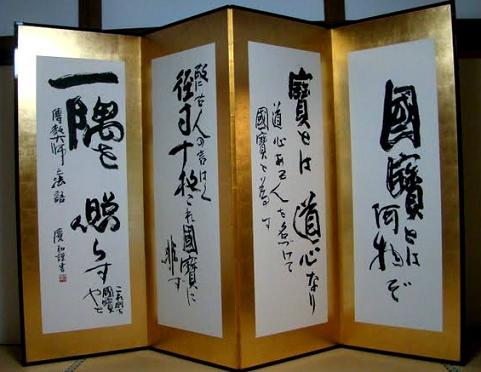 國寶とは
何物ぞ
寶とは 道心なり
道心ある人を名づけて
國寶と為す
故に古人の言はく
径寸十枚これ國寶に
非ず
一隅を 照らす
これ則ち
國寶
なりと
傳教大師法語 謹書